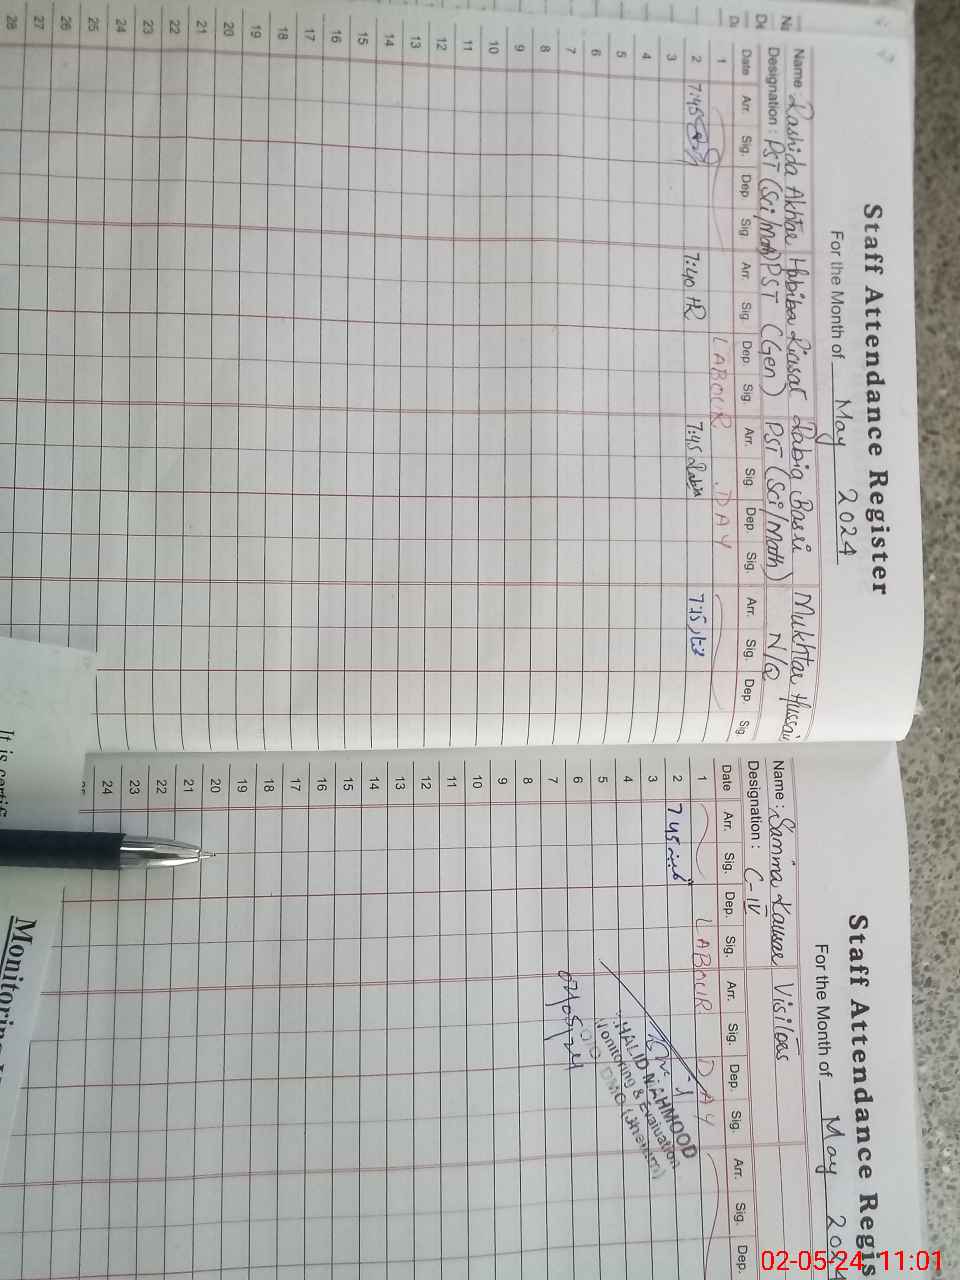 Staff Attendance Register
For the Month of May 2024
Name : Rashida Akhtar Habiba Riasat Rabia Bassi Mukhtar Hussain
Designation : PST (Sci/Math) PST (Gen) PST (Sci/Math) N/Q
Date Arr. Sig. Dep. Sig. Arr. Sig. Dep. Sig. Arr. Sig Dep. Sig. Arr. Sig. Dep Sig.
1 LABOUR DAY
2 7:45 7:40 HR 7:45 Rabia 7:15 مختار
3
4
5
6
7
8
9
10
11
12
13
14
15
16
17
18
19
20
21
22
23
24
25
26
27
28
Staff Attendance Regis
For the Month of May 2024
Name : Samina Kausar Visitors
Designation : C-IV
Date Arr. Sig. Dep. Sig. Arr. Sig. Dep. Sig. Arr. Sig. Dep.
1 LABOUR DAY
2 7 45
3
4
5
6
7
8
9
10
11
12
13
14
15
16
17
18
19
20
21
22
23
24
KHALID MAHMOOD
Monitoring & Evaluation
DMO (Jhelum)
02/05/24
It is certif
Monitoring
02-05-24, 11:01